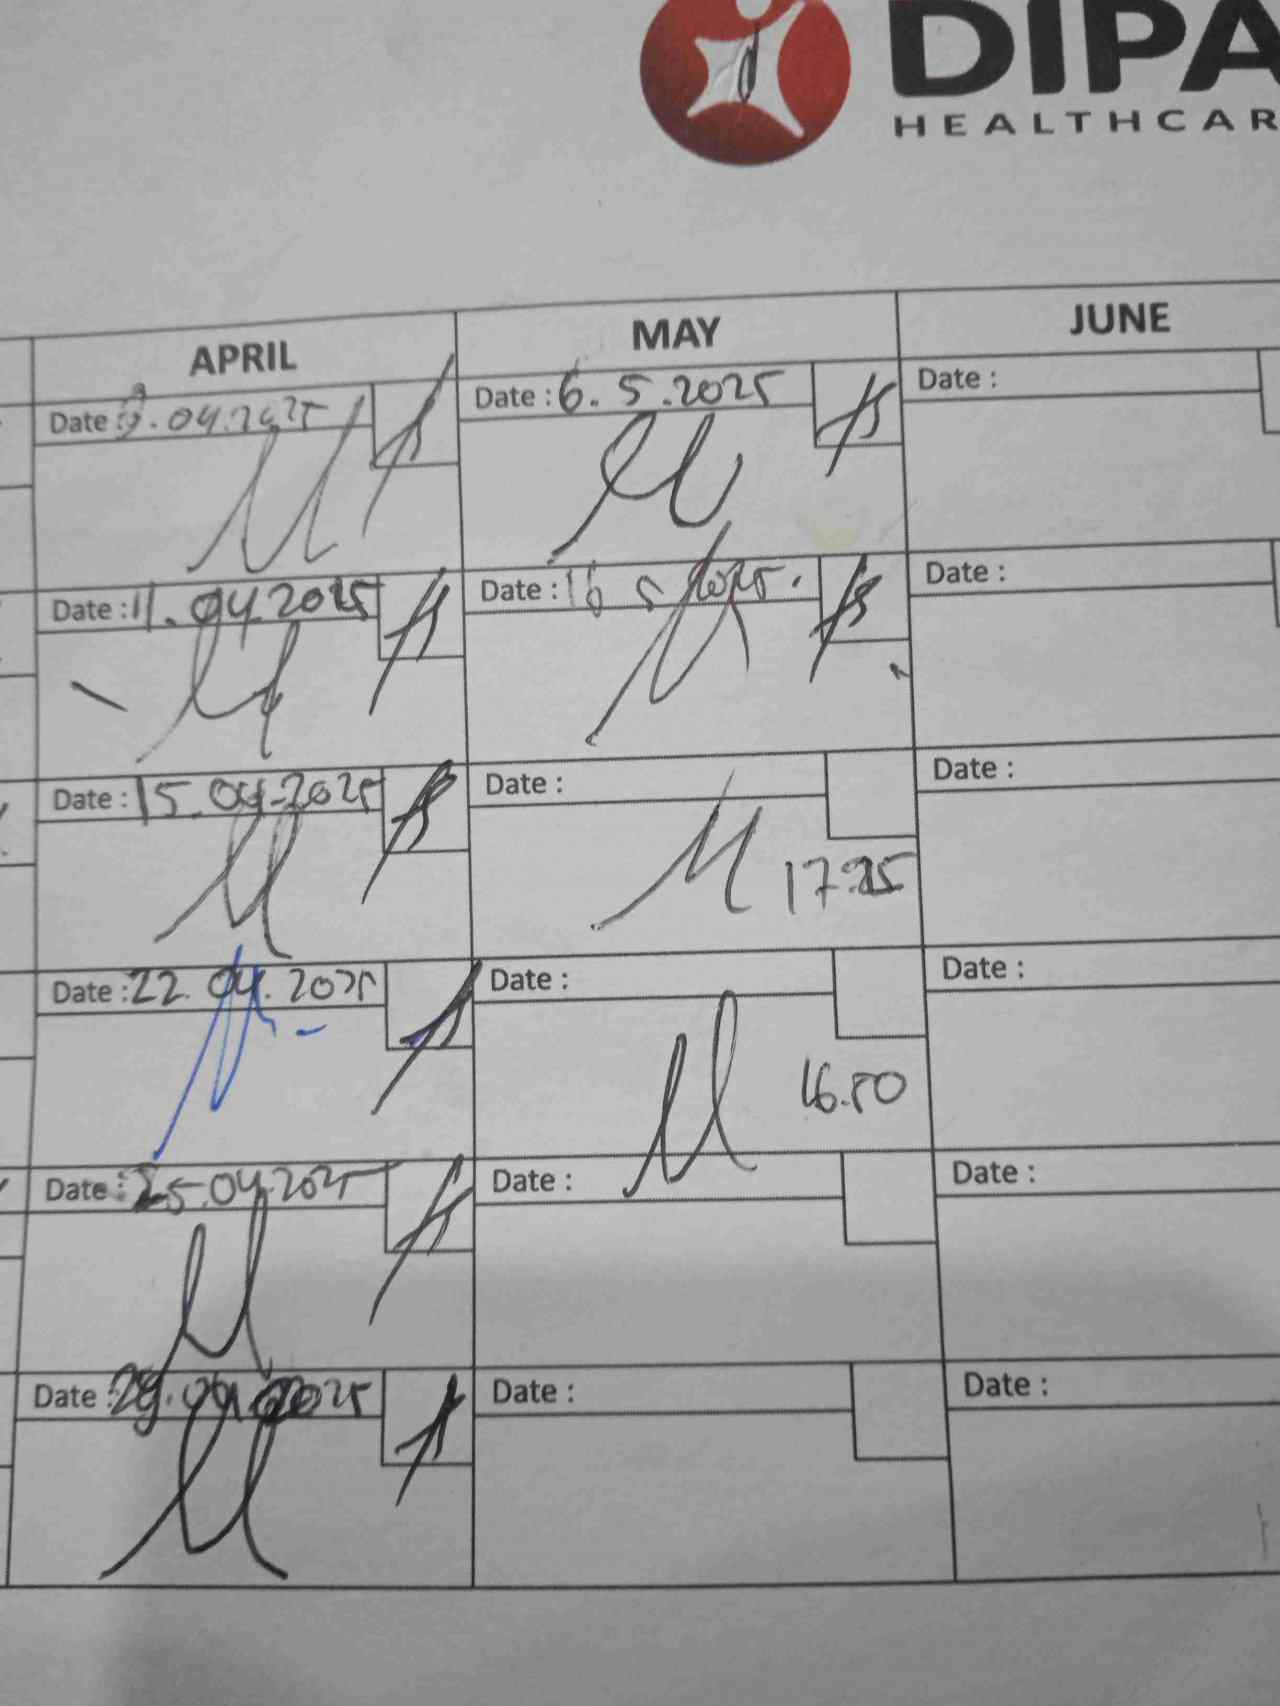 DIPA
HEALTHCAR
APRIL MAY JUNE
Date : .04.2025 Date : 6. 5.2025 Date :
Date : 11.04.2025 Date : 16 5 2025. Date :
Date : 15.04.2025 Date : Date :
17.25
Date : 22.04.2025 Date : Date :
16.50
Date : 25.04.2025 Date : Date :
Date : 29.04.2025 Date : Date :